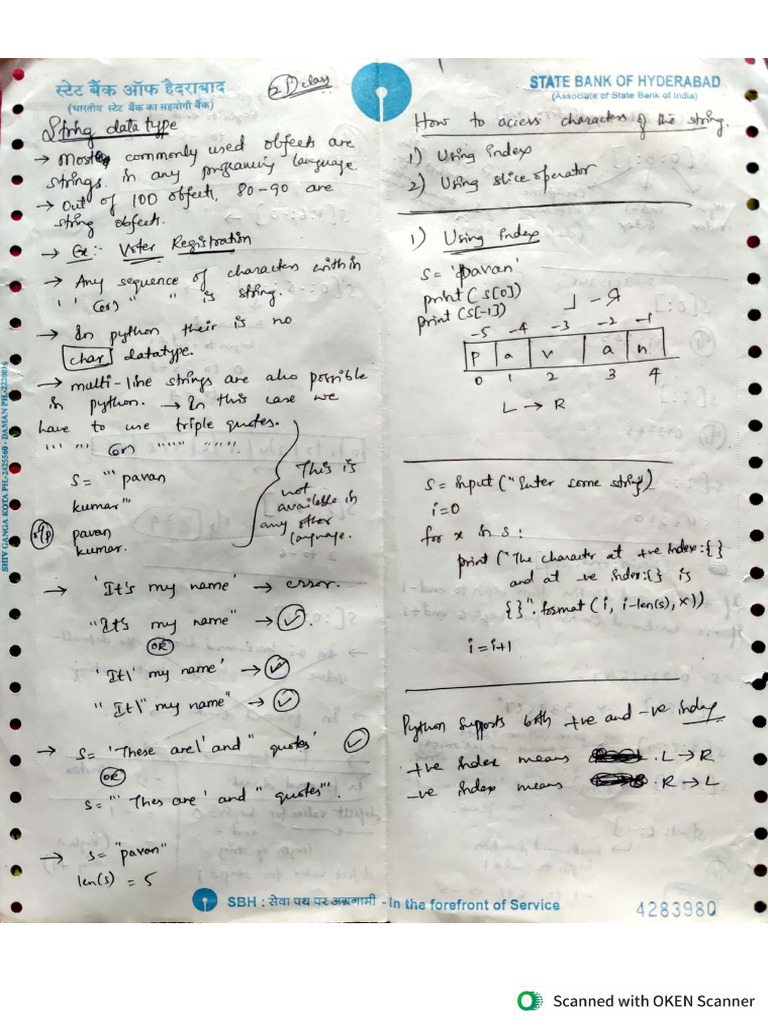 स्टेट बैंक ऑफ हैदराबाद
(भारतीय स्टेट बैंक का सहयोगी बैंक)
class
String data type
→ Mostly commonly used objects are
strings. in any language.
→ Out of 100 objects, 80-90 are
string objects.
→ Ex:- Voter Registration
→ Any sequence of characters within
' ' (or) " " is string.
→ In python their is no
char datatype.
→ multi-line strings are also possible
in python. → In this case we
have to use triple quotes.
''' ''' (or) """ """.
s= '''pavan
kumar'''
o/p pavan
kumar.
This is
not
available in
any other
language.
→ 'It's my name' → error.
"It's my name" → ✓.
OR
'It\' my name' → ✓
"It\" my name" → ✓
→ s= 'These are \' and " quotes' ✓
OR
s= ''' Thes are ' and " quotes'''.
→ s= "pavan"
len(s) = 5
STATE BANK OF HYDERABAD
(Associate of State Bank of India)
How to access characters of the string.
1) Using index
2) Using slice operator
1) Using index
s= 'pavan'
print(s[0])
print(s[-1])
-5 -4 -3 -2 -1
P a v a n
0 1 2 3 4
L → R
s= input("Enter some string")
i=0
for x in s:
print("The character at +ve index:{}
and at -ve index:{} is
{}".format(i, i-len(s), x))
i=i+1
Python supports both +ve and -ve index
+ve index means L → R
-ve index means R → L
SHIV GANGA KOTA PH.-2425560 - DAMAN PH.-2220016
SBH : सेवा पथ पर अग्रगामी - In the forefront of Service
4283980
Scanned with OKEN Scanner